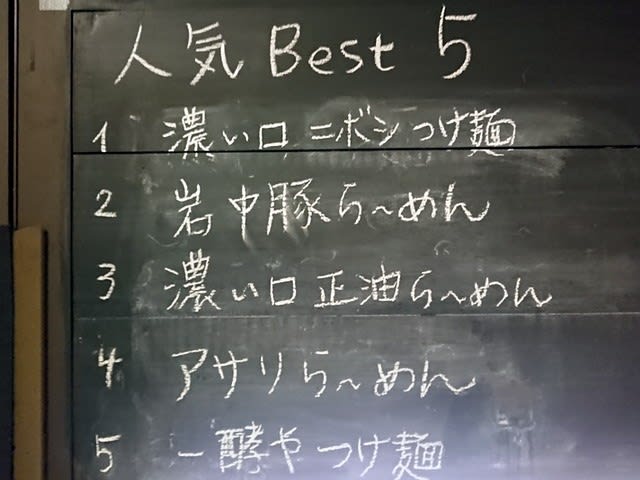 人気Best 5
1 濃い口ニボシつけ麺
2 岩中豚ら〜めん
3 濃い口正油ら〜めん
4 アサリら〜めん
5 一酵やつけ麺